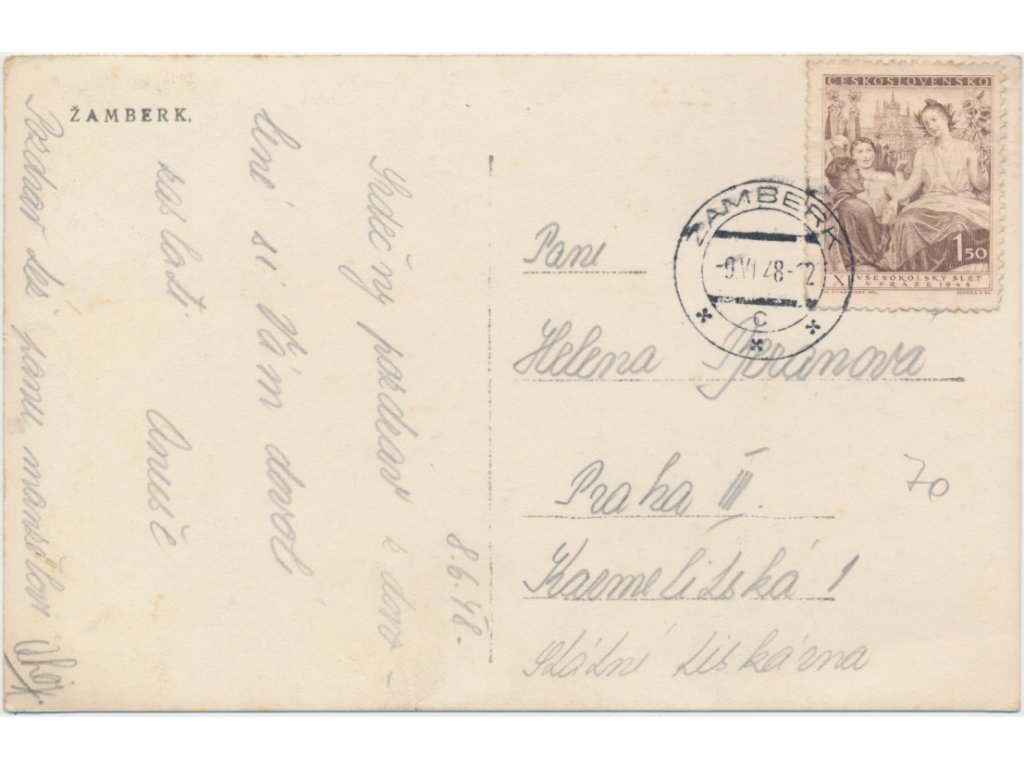 ŽAMBERK.
8.6.48.
Srdečný pozdrav z dovo-
lené si Vám dovol
zaslati
Pozdrav též panu
ČESKOSLOVENSKO
1 50
XI. VŠESOKOLSKÝ SLET
V PRAZE 1948
ŽAMBERK
-9.VI.48-12
C
Paní
Helena
Praha III.
Karmelitská 1
Státní tiskárna
70